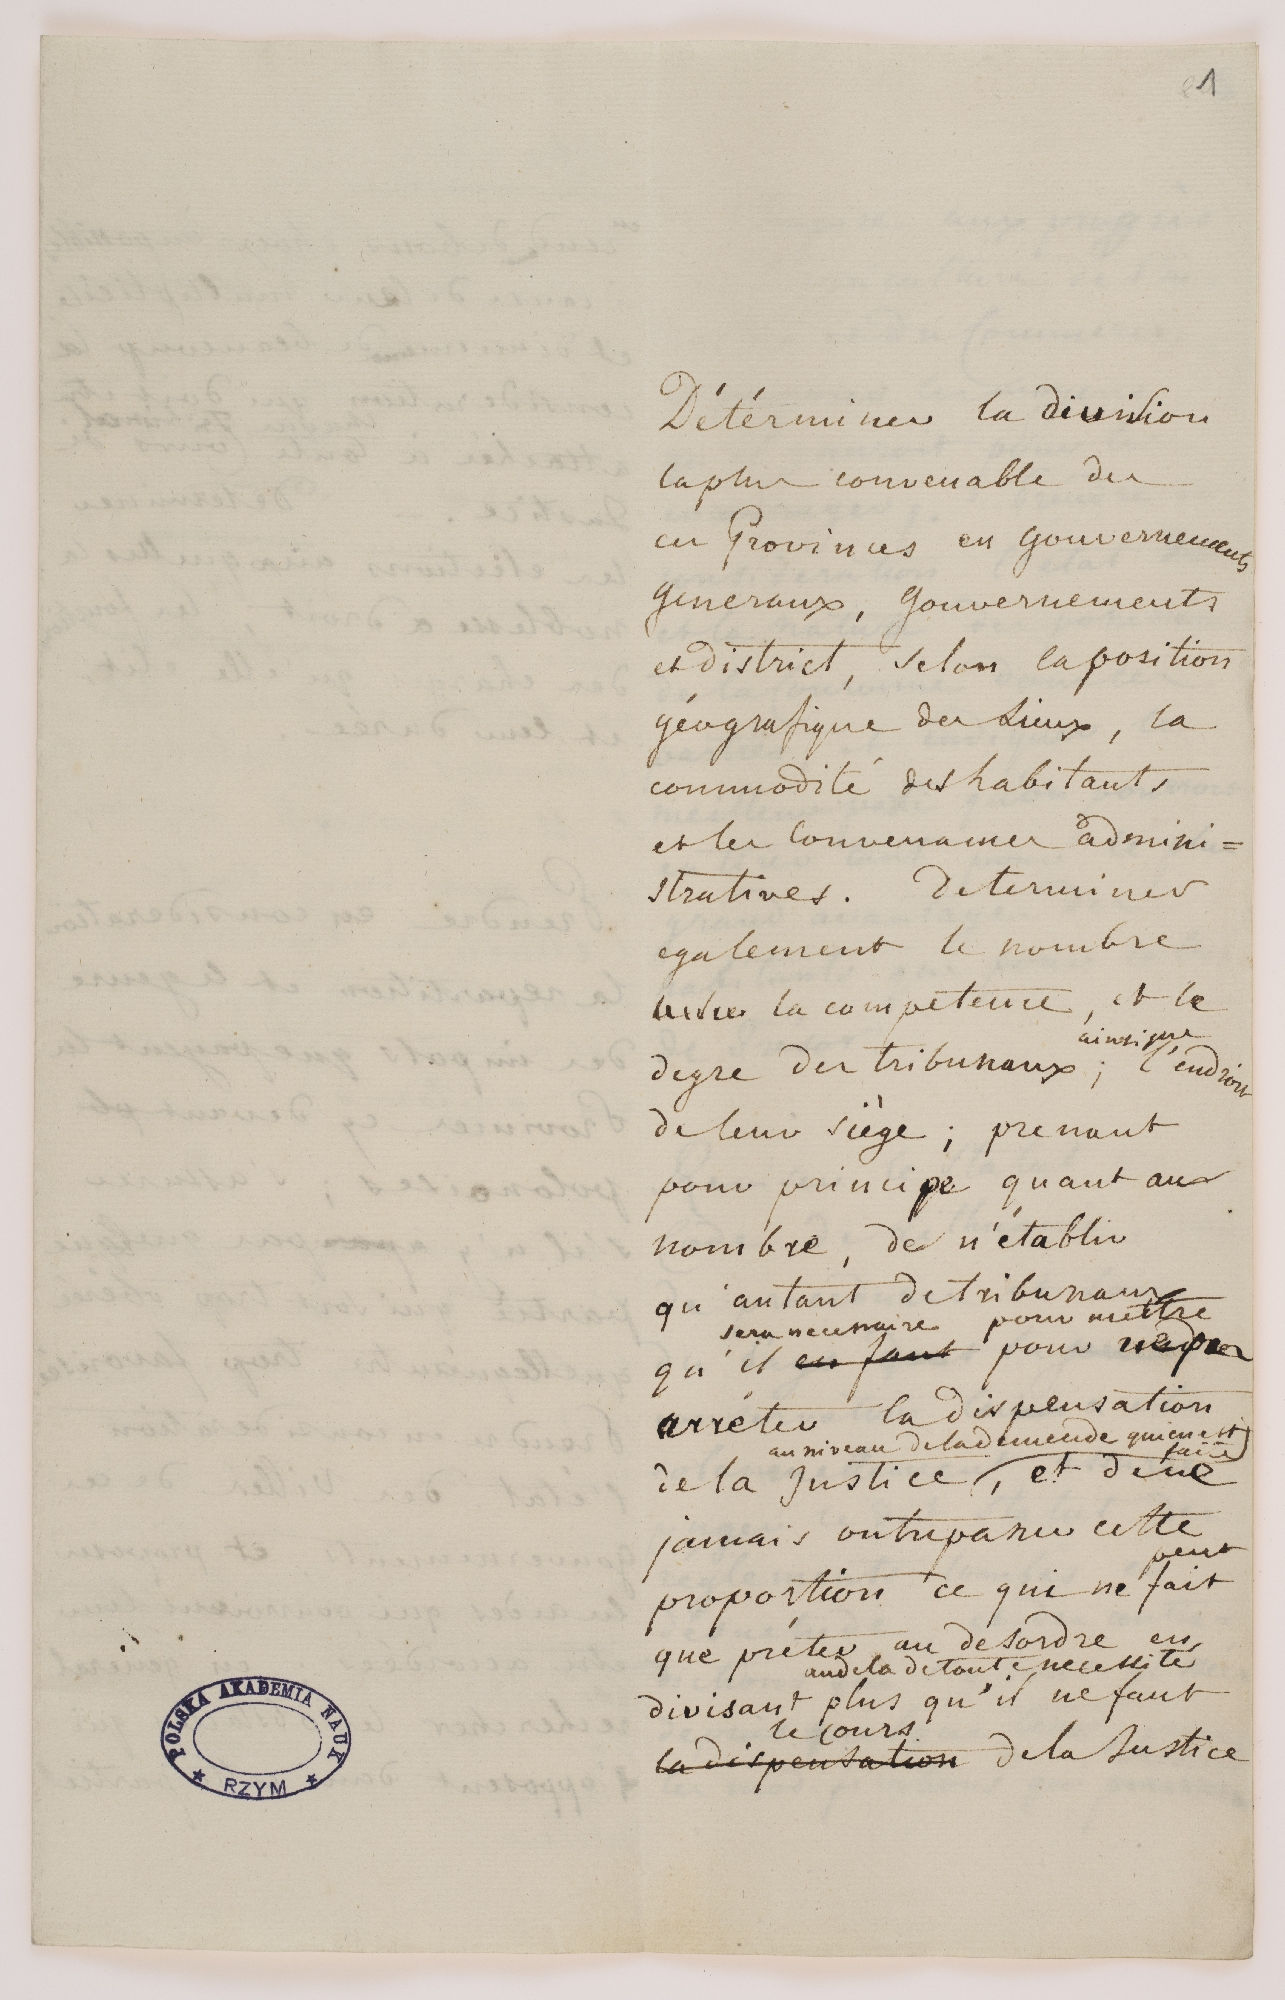 1
Détérminer la division
la plus convenable des
ces Provinces en gouvernements
generaux, gouvernements
et district, selon la position
géografique des Lieux, la
commodité des habitants
et les Convenances admini=
stratives. Determiner
egalement le nombre
la competence, et le
ainsi que
degre des tribunaux; l'endroit
de leur siège; prenant
pour principe quant au
nombre, de n'établir
qu'autant de tribunaux
sera necessaire pour mettre
qu'il en faut pour ne pas
arréter la dispensation
au niveau de la demende qui en est
faite
de la Justice, et de ne
jamais outrepasser cette
peut
proportion ce qui ne fait
que préter au desordre en
au dela de toute necessité
divisant plus qu'il ne faut
le cours
la dispensation de la Justice
POLSKA AKADEMIA NAUK
RZYM